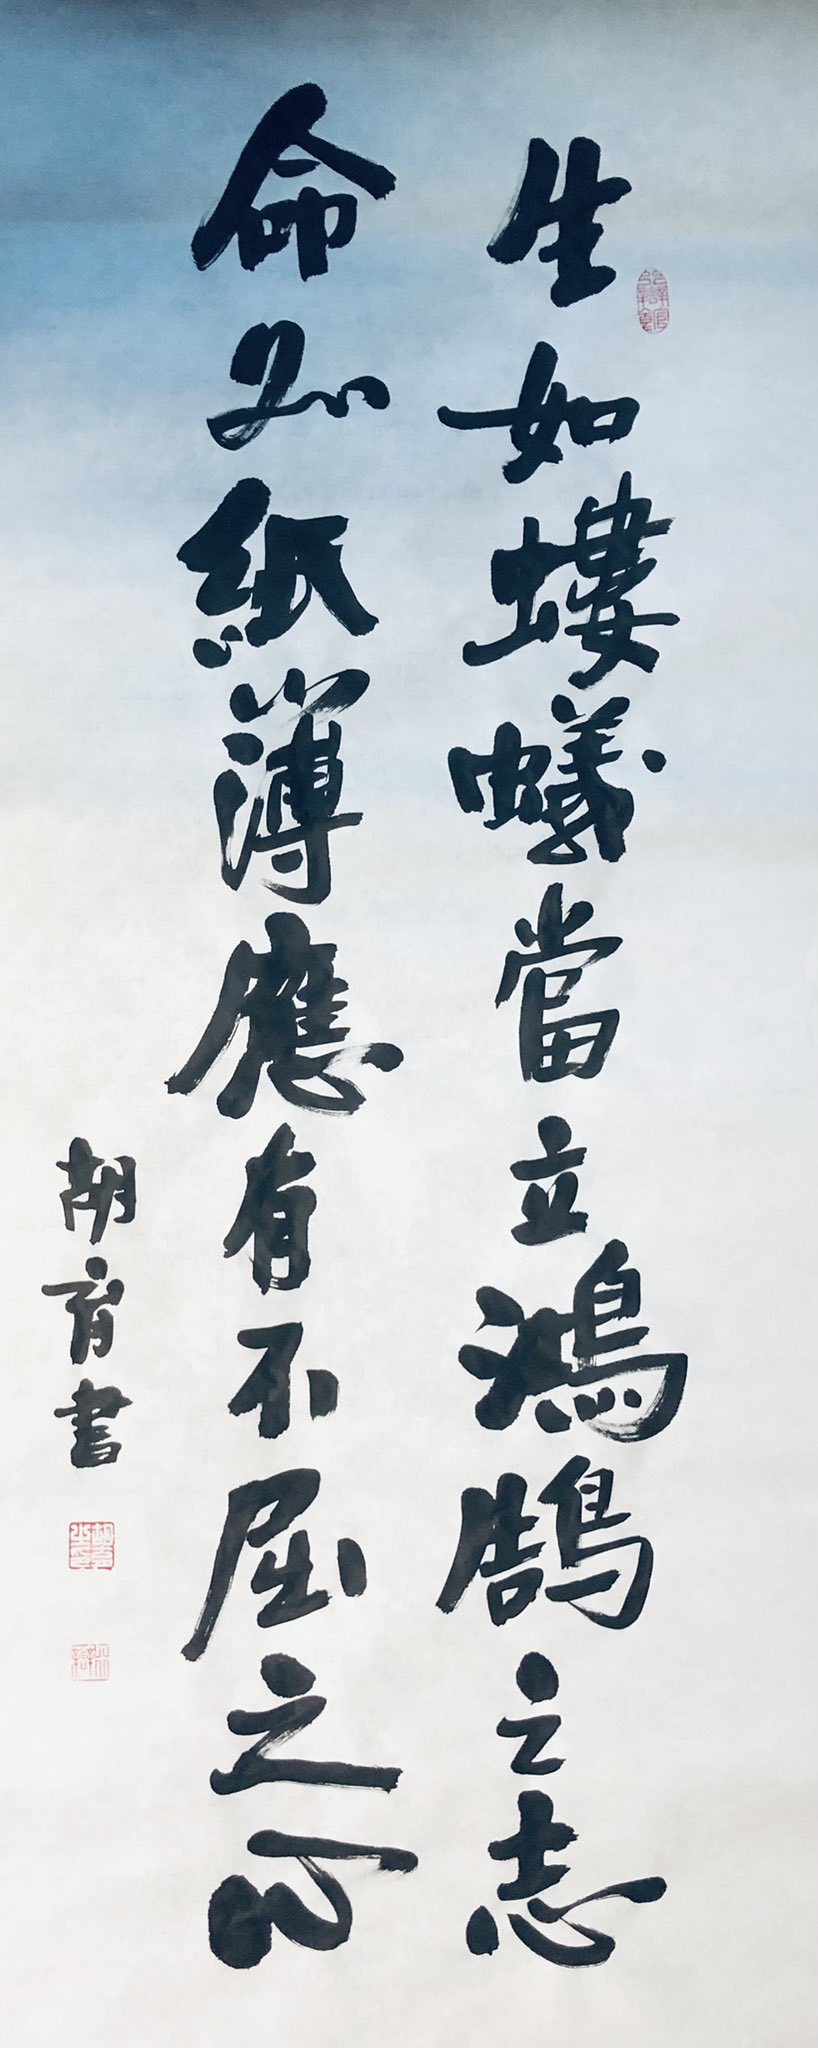 生如螻蟻當立鴻鵠之志
命如紙薄應有不屈之心
胡育書